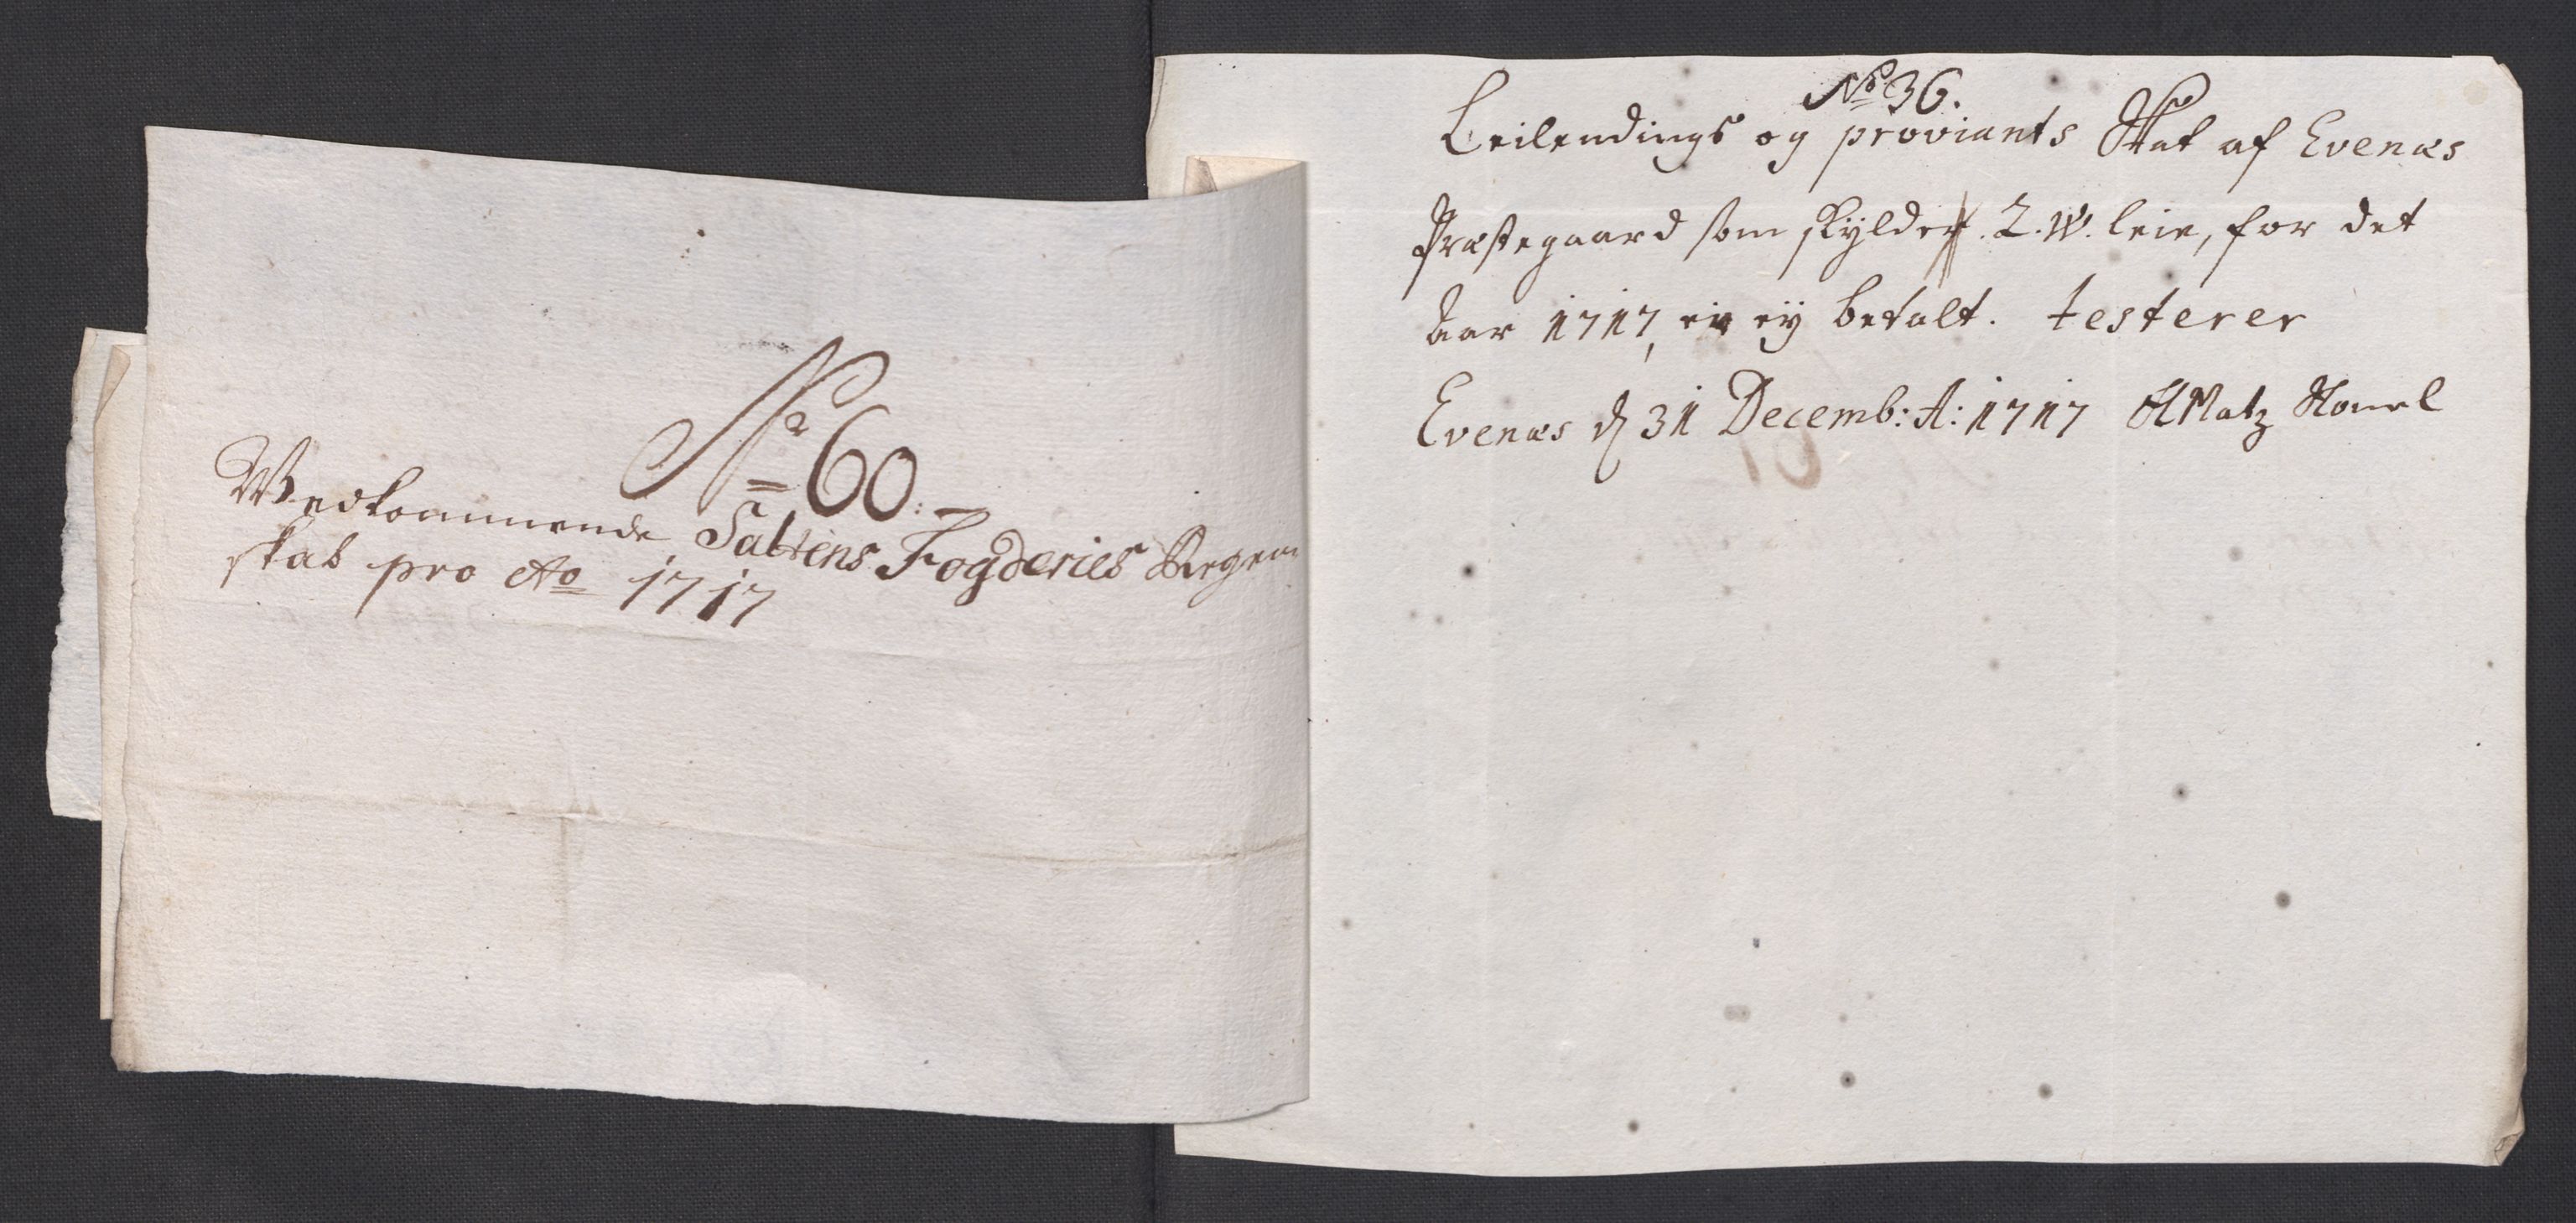 No 60.
Wedkommende Saltens Fogderies Regen
skab pro Ao 1717
No 36.
Leilendings og proviants Skat af Evenæs
Præstegaard som skylder 2. W. leie, for det
Aar 1717, er ey betalt. testerer
Evenæs d 31 Decemb: A: 1717 Matz